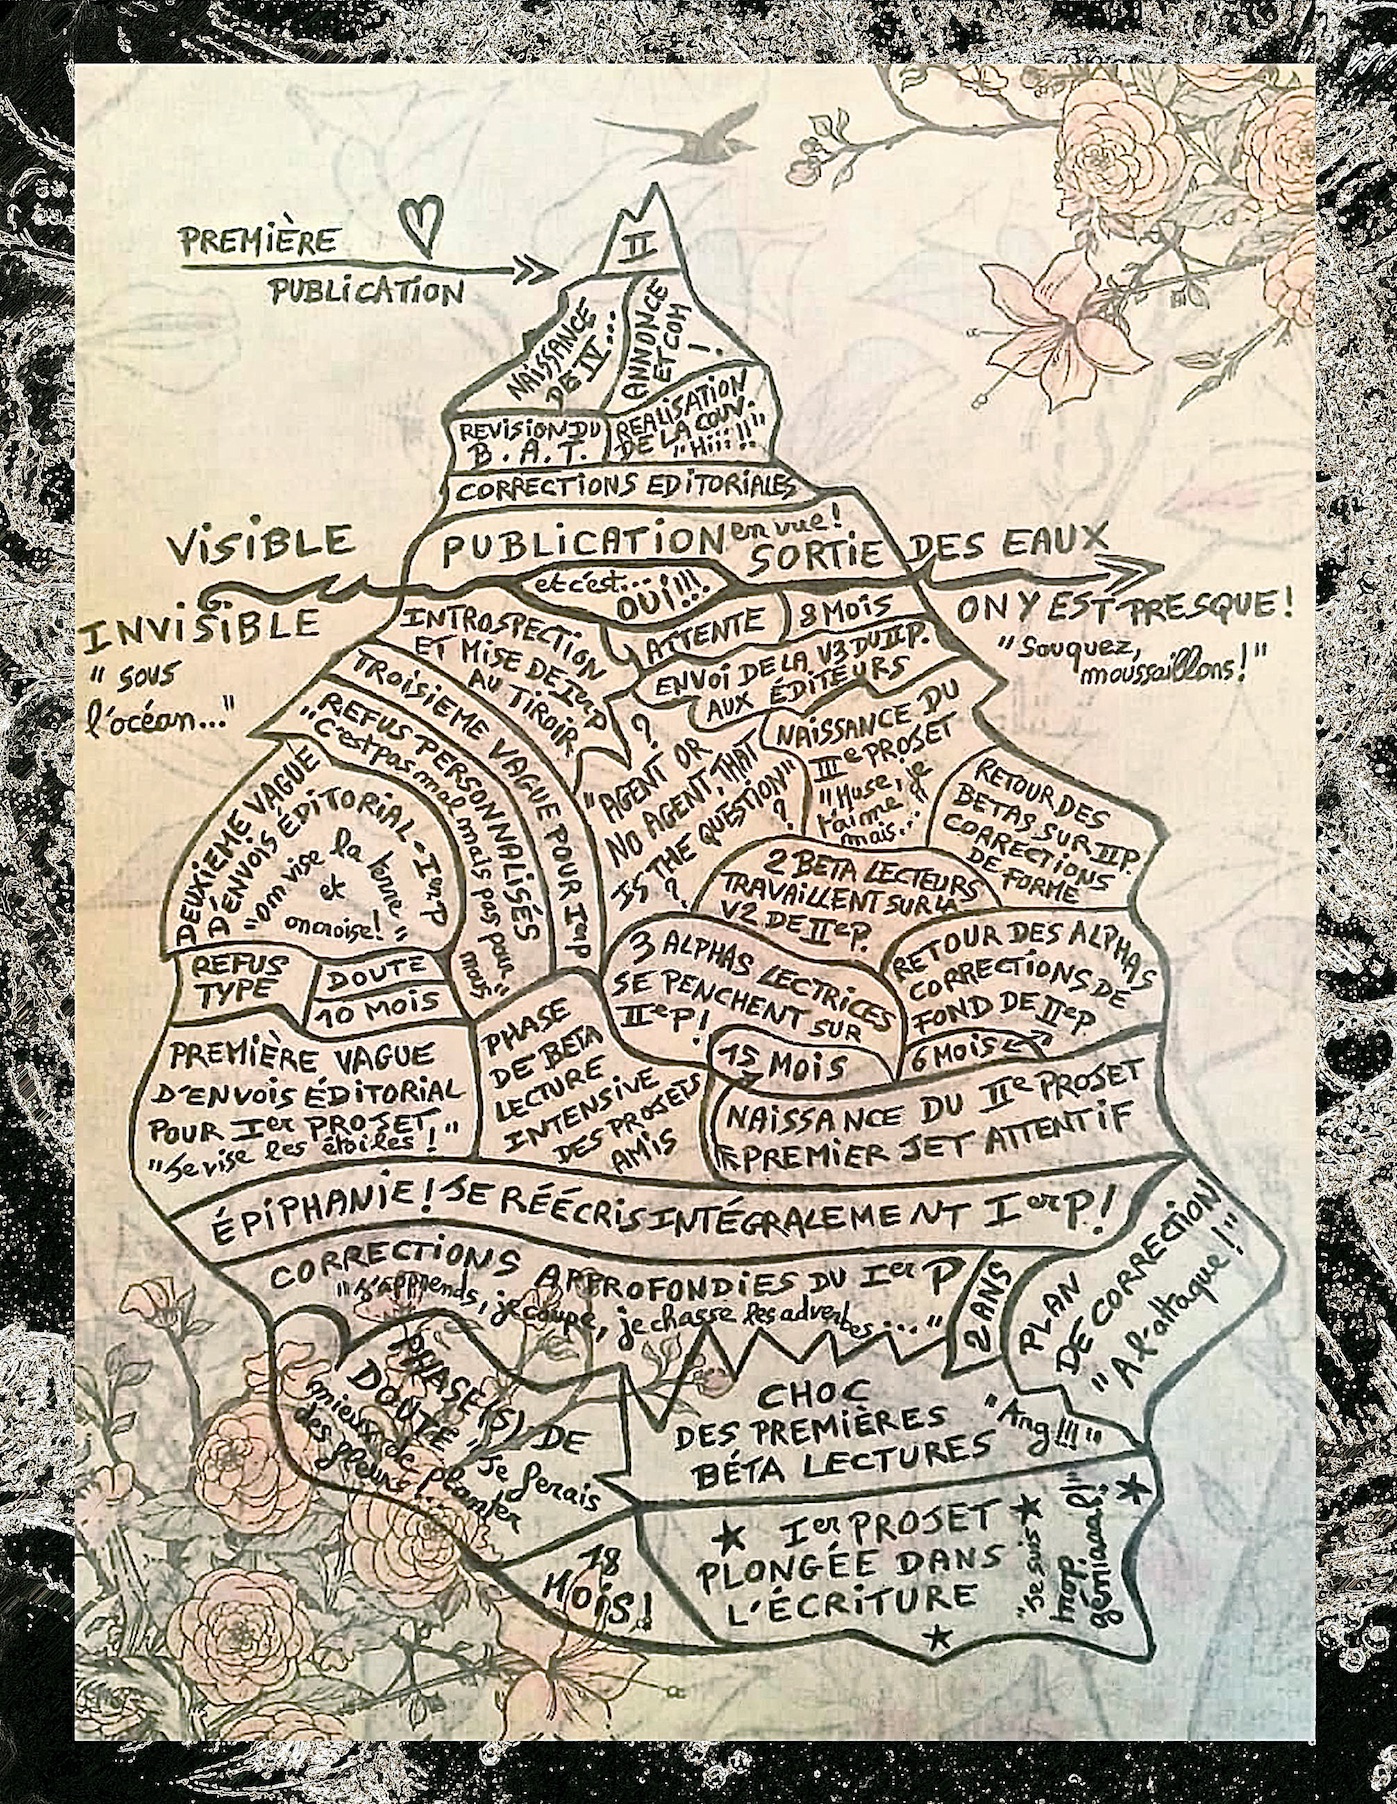 PREMIÈRE
PUBLICATION
II
NAISSANCE
DE IV...
ANNONCE
ET COM
!
REVISION DU
B.A.T.
REALISATION
DE LA COUV.
"Hiiii!!"
CORRECTIONS EDITORIALES
PUBLICATION en vue!
VISIBLE
SORTIE DES EAUX
et c'est...
OUI!!!
INVISIBLE
"sous
l'océan..."
ON Y EST PRESQUE!
"Souquez,
moussaillons!"
INTROSPECTION
ET MISE DE IerP
AU TIROIR
ATTENTE
8 MOIS
ENVOI DE LA V3 DU IIP.
AUX ÉDITEURS
TROISIEME VAGUE POUR IerP
REFUS PERSONNALISÉS
"C'est pas mal mais pas pour
nous"
?
"AGENT OR
NO AGENT, THAT
IS THE QUESTION"
?
?
NAISSANCE DU
IIIe PROJET
"Muse, je
t'aime
mais...
RETOUR DES
BETAS SUR IIP.
CORRECTIONS
DE FORME
DEUXIEME VAGUE
D'ENVOIS ÉDITORIAL - IerP
"on vise la lune
et
on croise!"
2 BETA LECTEURS
TRAVAILLENT SUR LA
V2 DE IIeP.
3 ALPHAS LECTRICES
SE PENCHENT SUR
IIeP!
RETOUR DES ALPHAS
CORRECTIONS DE
FOND DE IIeP
REFUS
TYPE
DOUTE
10 MOIS
15 MOIS
6 MOIS
PREMIÈRE VAGUE
D'ENVOIS ÉDITORIAL
POUR Ier PROJET
"Je vise les étoiles!"
PHASE
DE BETA
LECTURE
INTENSIVE
DES PROJETS
AMIS
NAISSANCE DU IIe PROJET
PREMIER JET ATTENTIF
ÉPIPHANIE! JE RÉÉCRIS INTÉGRALEMENT IerP!
CORRECTIONS APPROFONDIES DU Ier P
"J'apprends, je coupe, je chasse les adverbes..."
2 ANS
PLAN
DE CORRECTION
"A l'attaque!"
PHASE(S) DE
DOUTE "Je ferais
mieux de planter
des fleurs...
CHOC
DES PREMIÈRES
BÉTA LECTURES
"Ang!!!"
18
MOIS!
Ier PROJET
PLONGÉE DANS
L'ÉCRITURE
"Je suis
trop
géniaaal!"